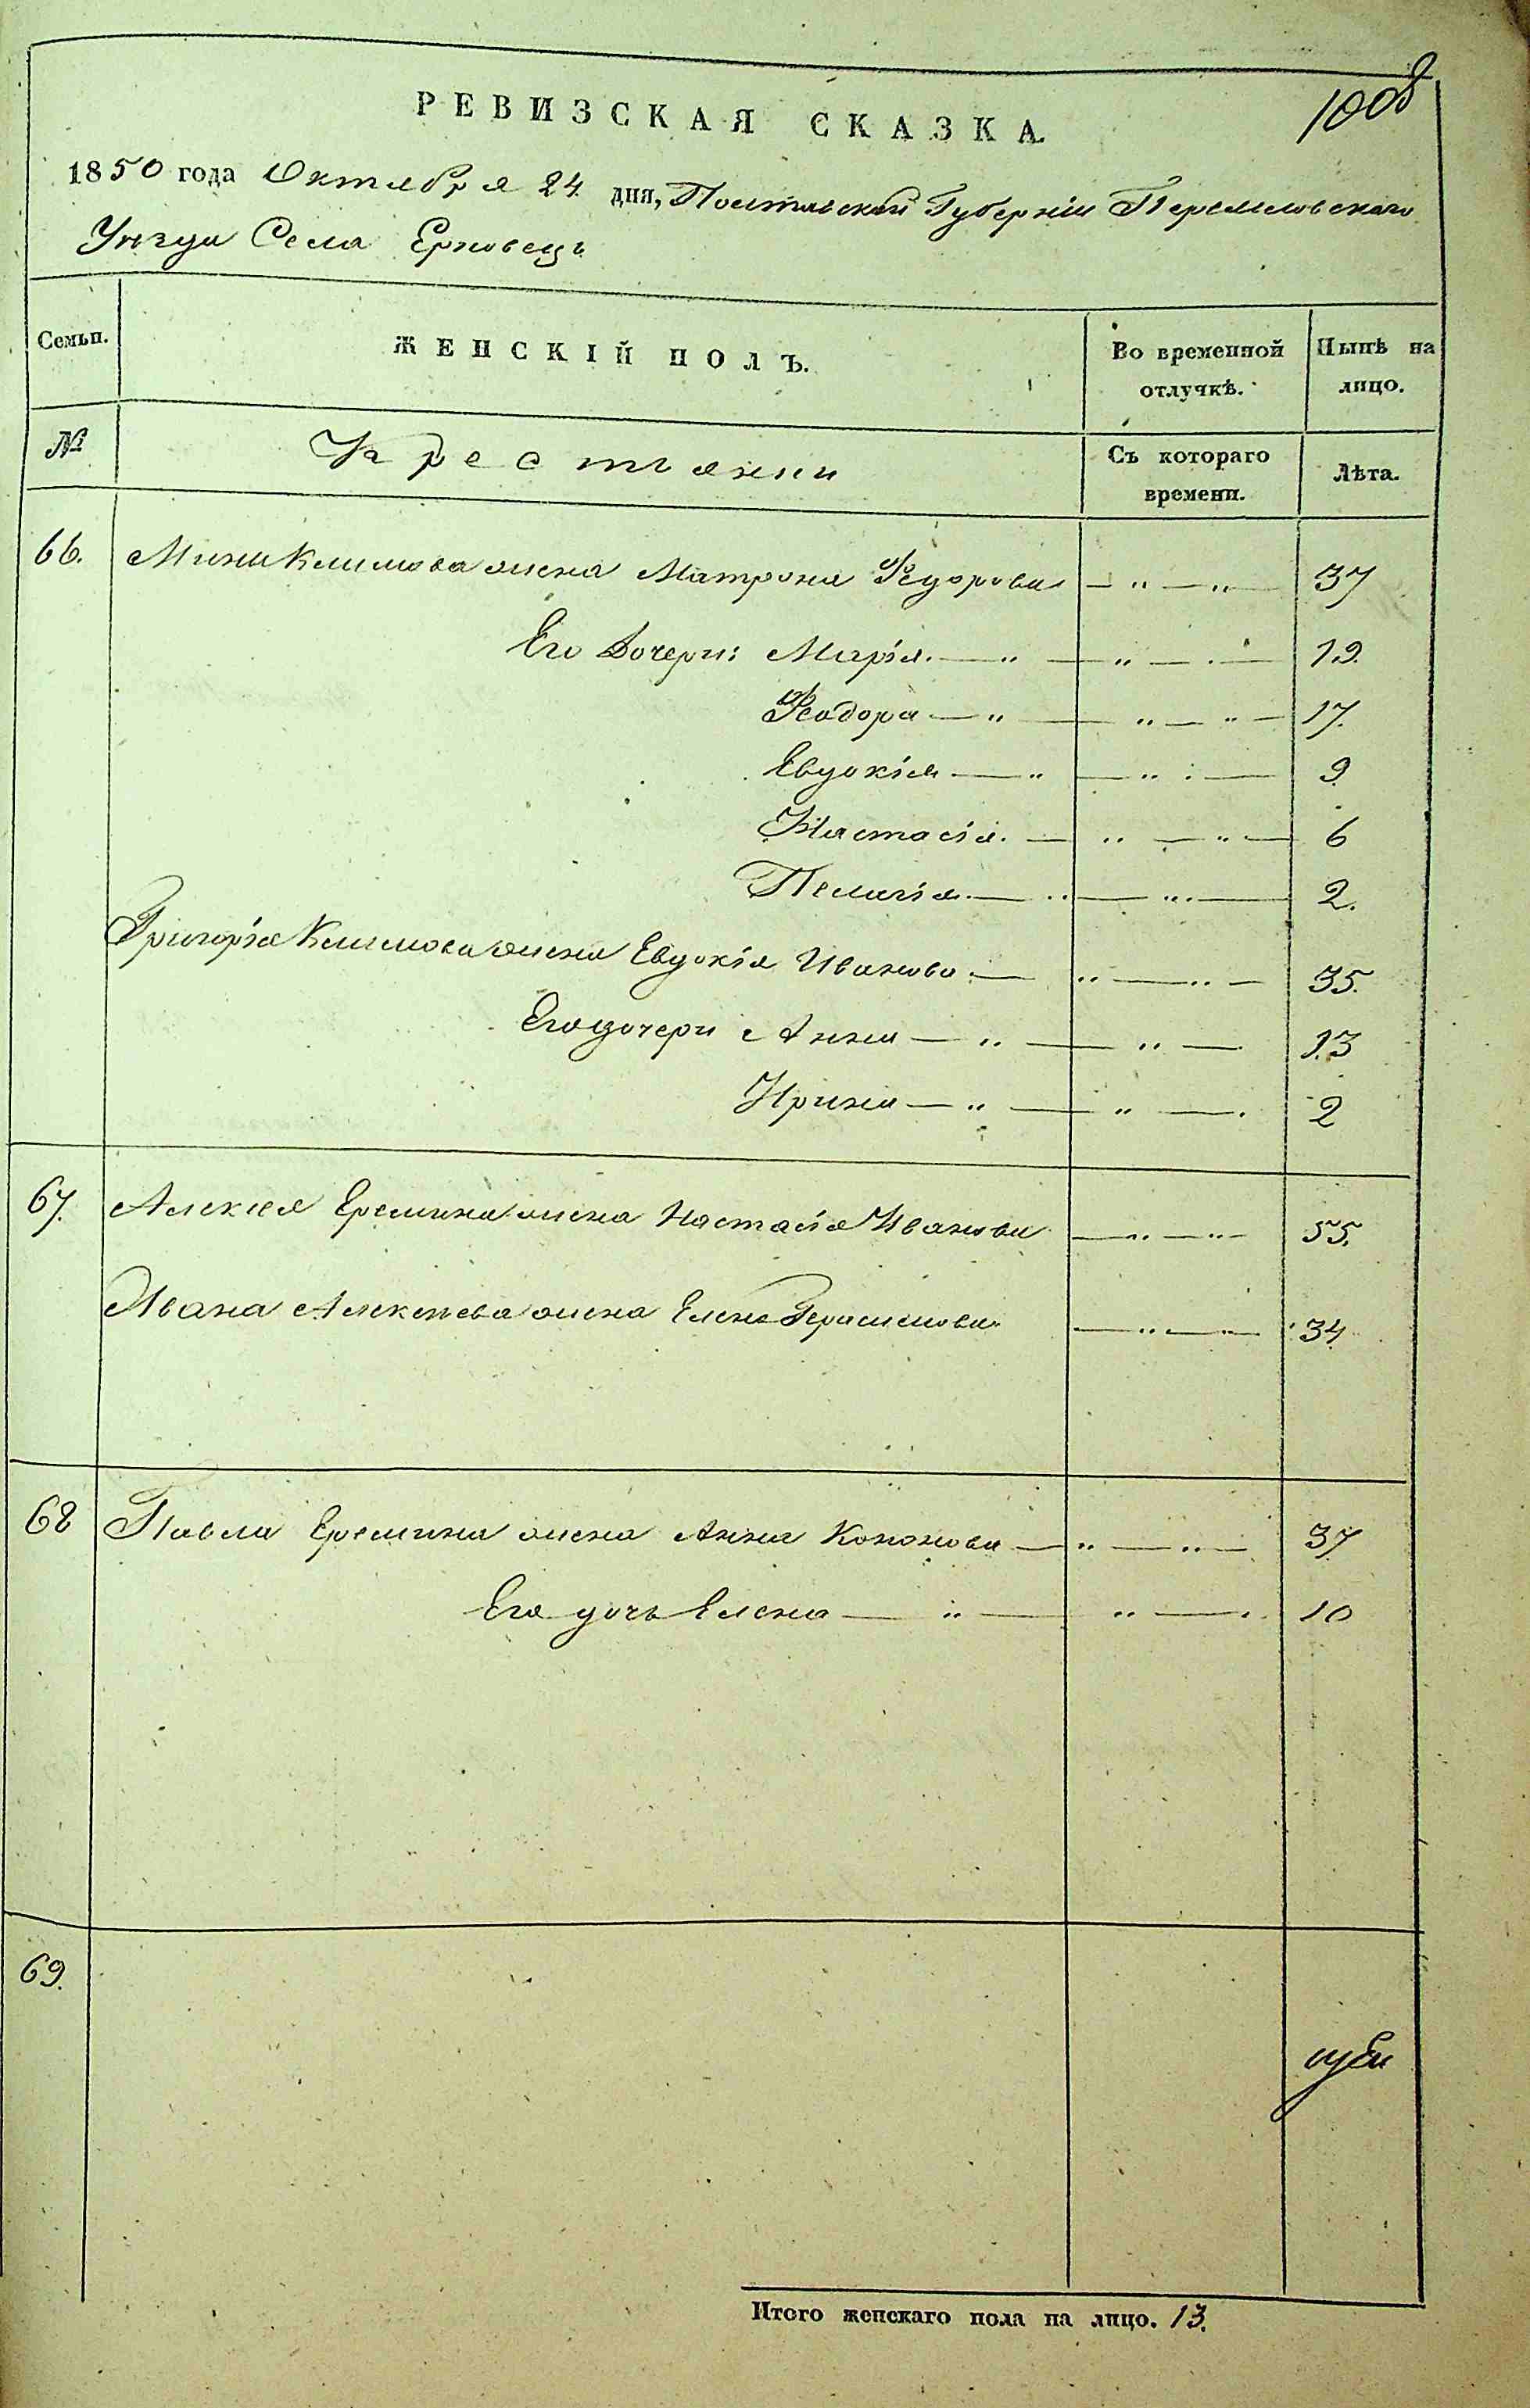 1008
РЕВИЗСКАЯ СКАЗКА
1850 года Октября 24 дня, Полтавской Губерніи
Уѣзда Села Ерковецъ
Семьи. ЖЕНСКІЙ ПОЛЪ. Во временной отлучкѣ. Нынѣ на лицо.
№ Крестьяни Съ котораго времени. Лѣта.
66. Мины Климова жена Матрона Федорова — " — " — 37
Его Дочери: Марія. — " — " — 19.
Феодора — " — " — " — 17.
Евдокія — " — " — 9
Настасія. — " — " — 6
Пелагія — " — " — 2.
Григорія Климова жена Евдокія Иванова — " — " — 35.
Его дочери Анна — " — " — 13
Ирина — " — " — 2
67. Алексея Еремина жена Настасія Иванова — " — " — 55.
Ивана Алексѣева жена Елена Герасимова — " — " — 34
68 Павла Еремина жена Анна Кононова — " — " — 37
Его дочь Елена — " — " — 10
69.
Итого женскаго пола на лицо. 13.